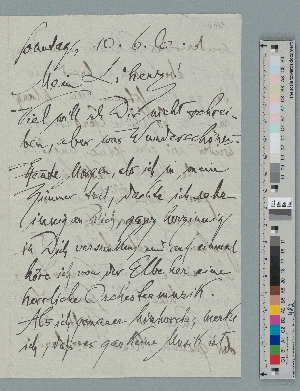 Sonntag, 10. 6.
Mein L
Viel will ich Dir nicht schrei-
ben, aber was Wunderschönes.
Heute Morgen, als ich in mein
Zimmer trat, dachte ich sehr
innig an Dich, ganz
in Dich versunken und auf einmal
höre ich von der Elbe her eine
herrliche Orchestermusik.
Als ich genauer hinhorche, merke
ich, gar keine Musik ist